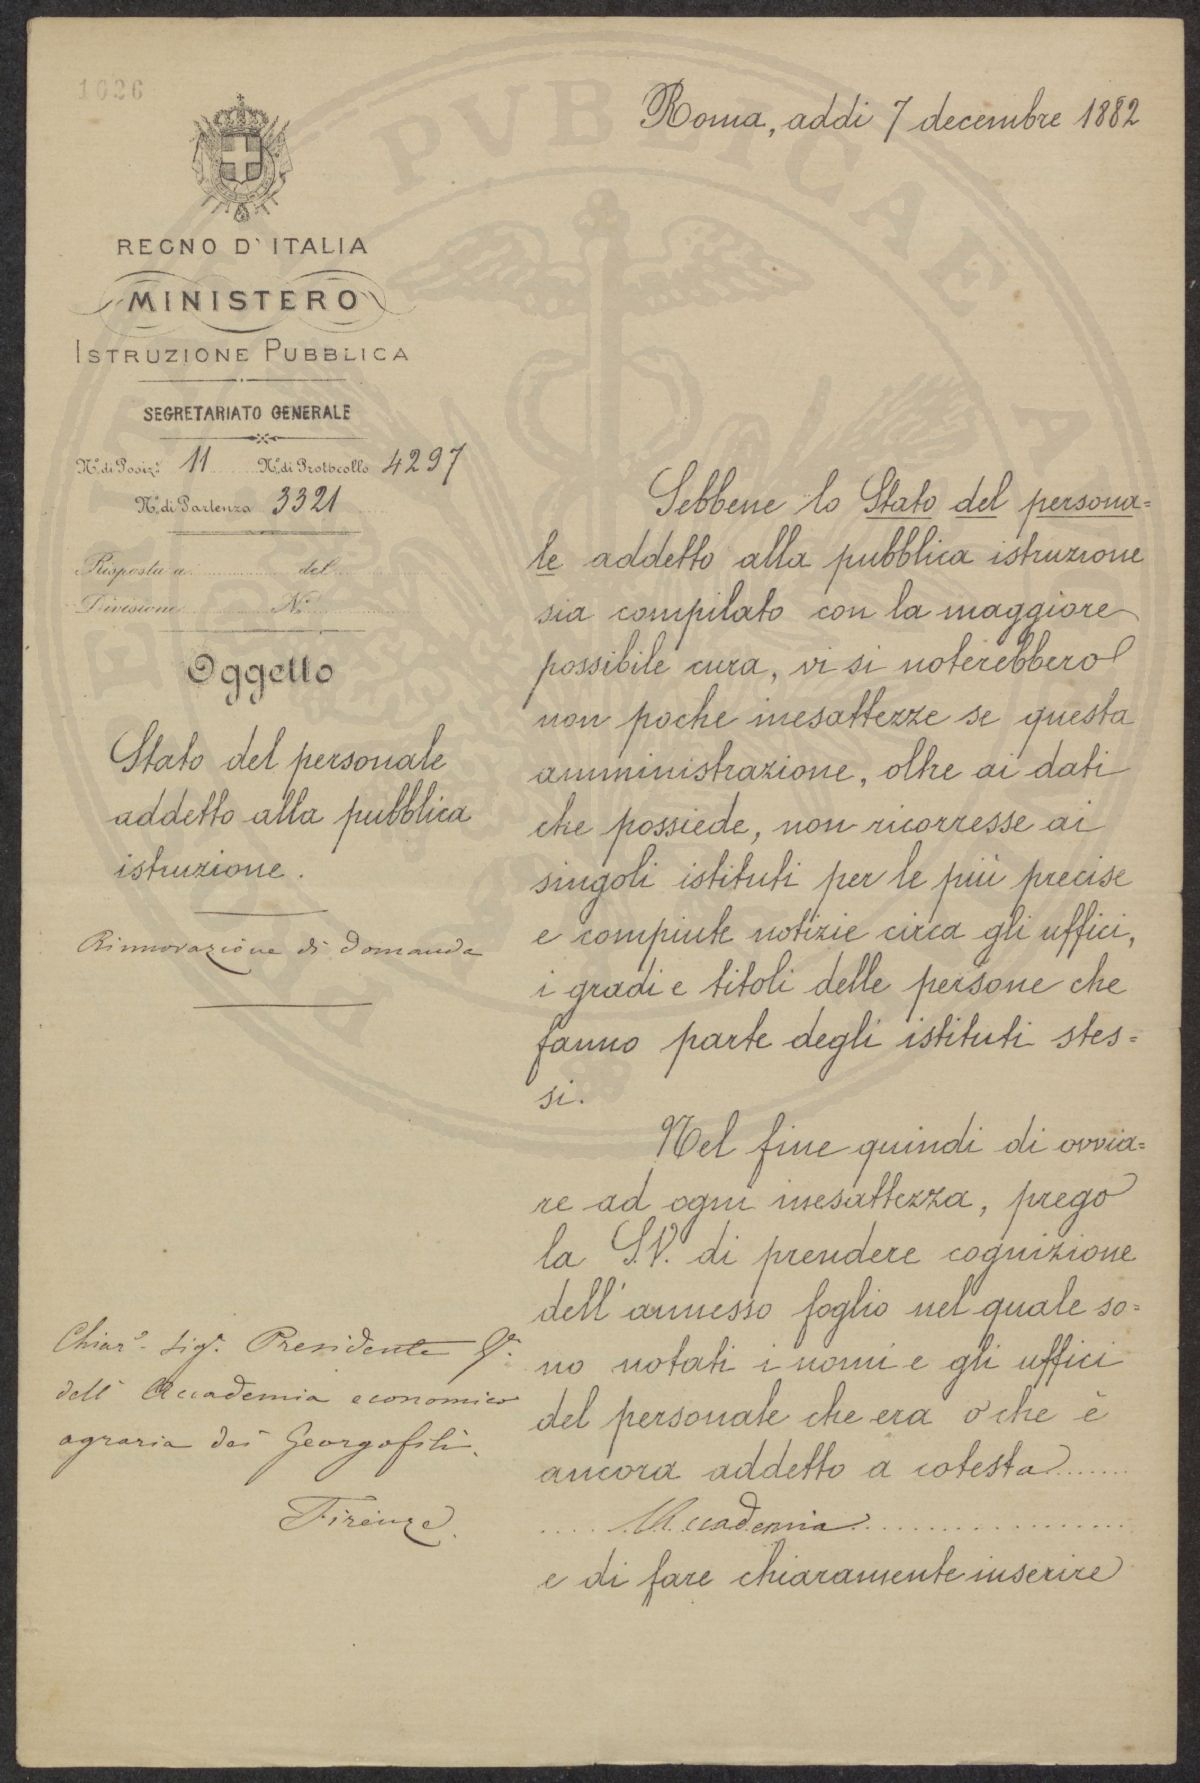 1026
Roma, addi 7 decembre 1882
REGNO D'ITALIA
MINISTERO
ISTRUZIONE PUBBLICA
SEGRETARIATO GENERALE
N.º di Posiz.e 11 N.º di Protocollo 4297
N.º di Partenza 3321
Risposta a del
Divisione N.
Oggetto
Stato del personale
addetto alla pubblica
istruzione.
Rinnovazione di domanda
Chiar.º Sig.r Presidente
dell'Accademia economico
agraria dei Georgofili.
Firenze.
Sebbene lo Stato del persona=
le addetto alla pubblica istruzione
sia compilato con la maggiore
possibile cura, vi si noterebbero
non poche inesattezze se questa
amministrazione, oltre ai dati
che possiede, non ricorresse ai
singoli istituti per le più precise
e compiute notizie circa gli uffici,
i gradi e titoli delle persone che
fanno parte degli istituti stes=
si.
Nel fine quindi di ovvia=
re ad ogni inesattezza, prego
la S.V. di prendere cognizione
dell'annesso foglio nel quale so=
no notati i nomi e gli uffici
del personale che era o che è
ancora addetto a cotesta
Accademia
e di fare chiaramente inserire
PVBLICAE